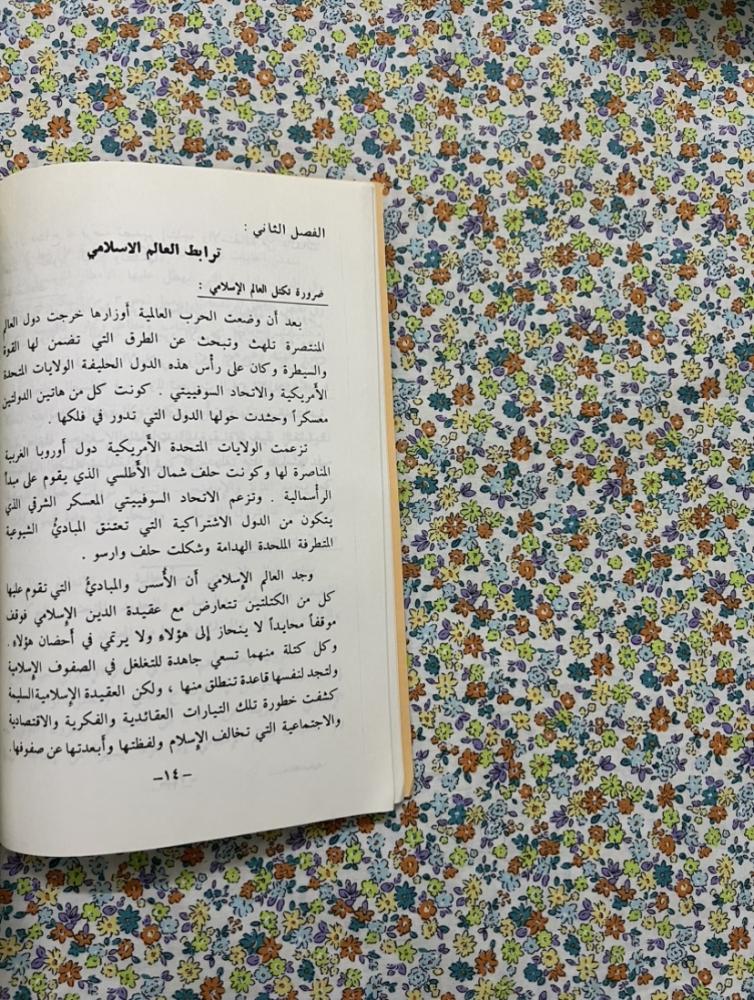 الفصل الثاني :
ترابط العالم الاسلامي
ضرورة تكتل العالم الإسلامي :
بعد أن وضعت الحرب العالمية أوزارها خرجت دول العالم
المنتصرة تلهث وتبحث عن الطرق التي تضمن لها القوة
والسيطرة وكان على رأس هذه الدول الحليفة الولايات المتحدة
الأمريكية والاتحاد السوفييتي . كونت كل من هاتين الدولتين
معسكراً وحشدت حولها الدول التي تدور في فلكها .
تزعمت الولايات المتحدة الأمريكية دول أوروبا الغربية
المناصرة لها وكونت حلف شمال الأطلسي الذي يقوم على مبدأ
الرأسمالية . وتزعم الاتحاد السوفييتي المعسكر الشرقي الذي
يتكون من الدول الاشتراكية التي تعتنق المبادئ الشيوعية
المتطرفة الملحدة الهدامة وشكلت حلف وارسو .
وجد العالم الإسلامي أن الأُسس والمبادئ التي تقوم عليها
كل من الكتلتين تتعارض مع عقيدة الدين الإسلامي فوقف
موقفاً محايداً لا ينحاز إلى هؤلاء ولا يرتمي في أحضان هؤلاء .
وكل كتلة منهما تسعى جاهدة للتغلغل في الصفوف الإسلامية
ولتجد لنفسها قاعدة تنطلق منها ، ولكن العقيدة الإسلامية السليمة
كشفت خطورة تلك التيارات العقائدية والفكرية والاقتصادية
والاجتماعية التي تخالف الإسلام ولفظتها وأبعدتها عن صفوفها.
– ١٤ –